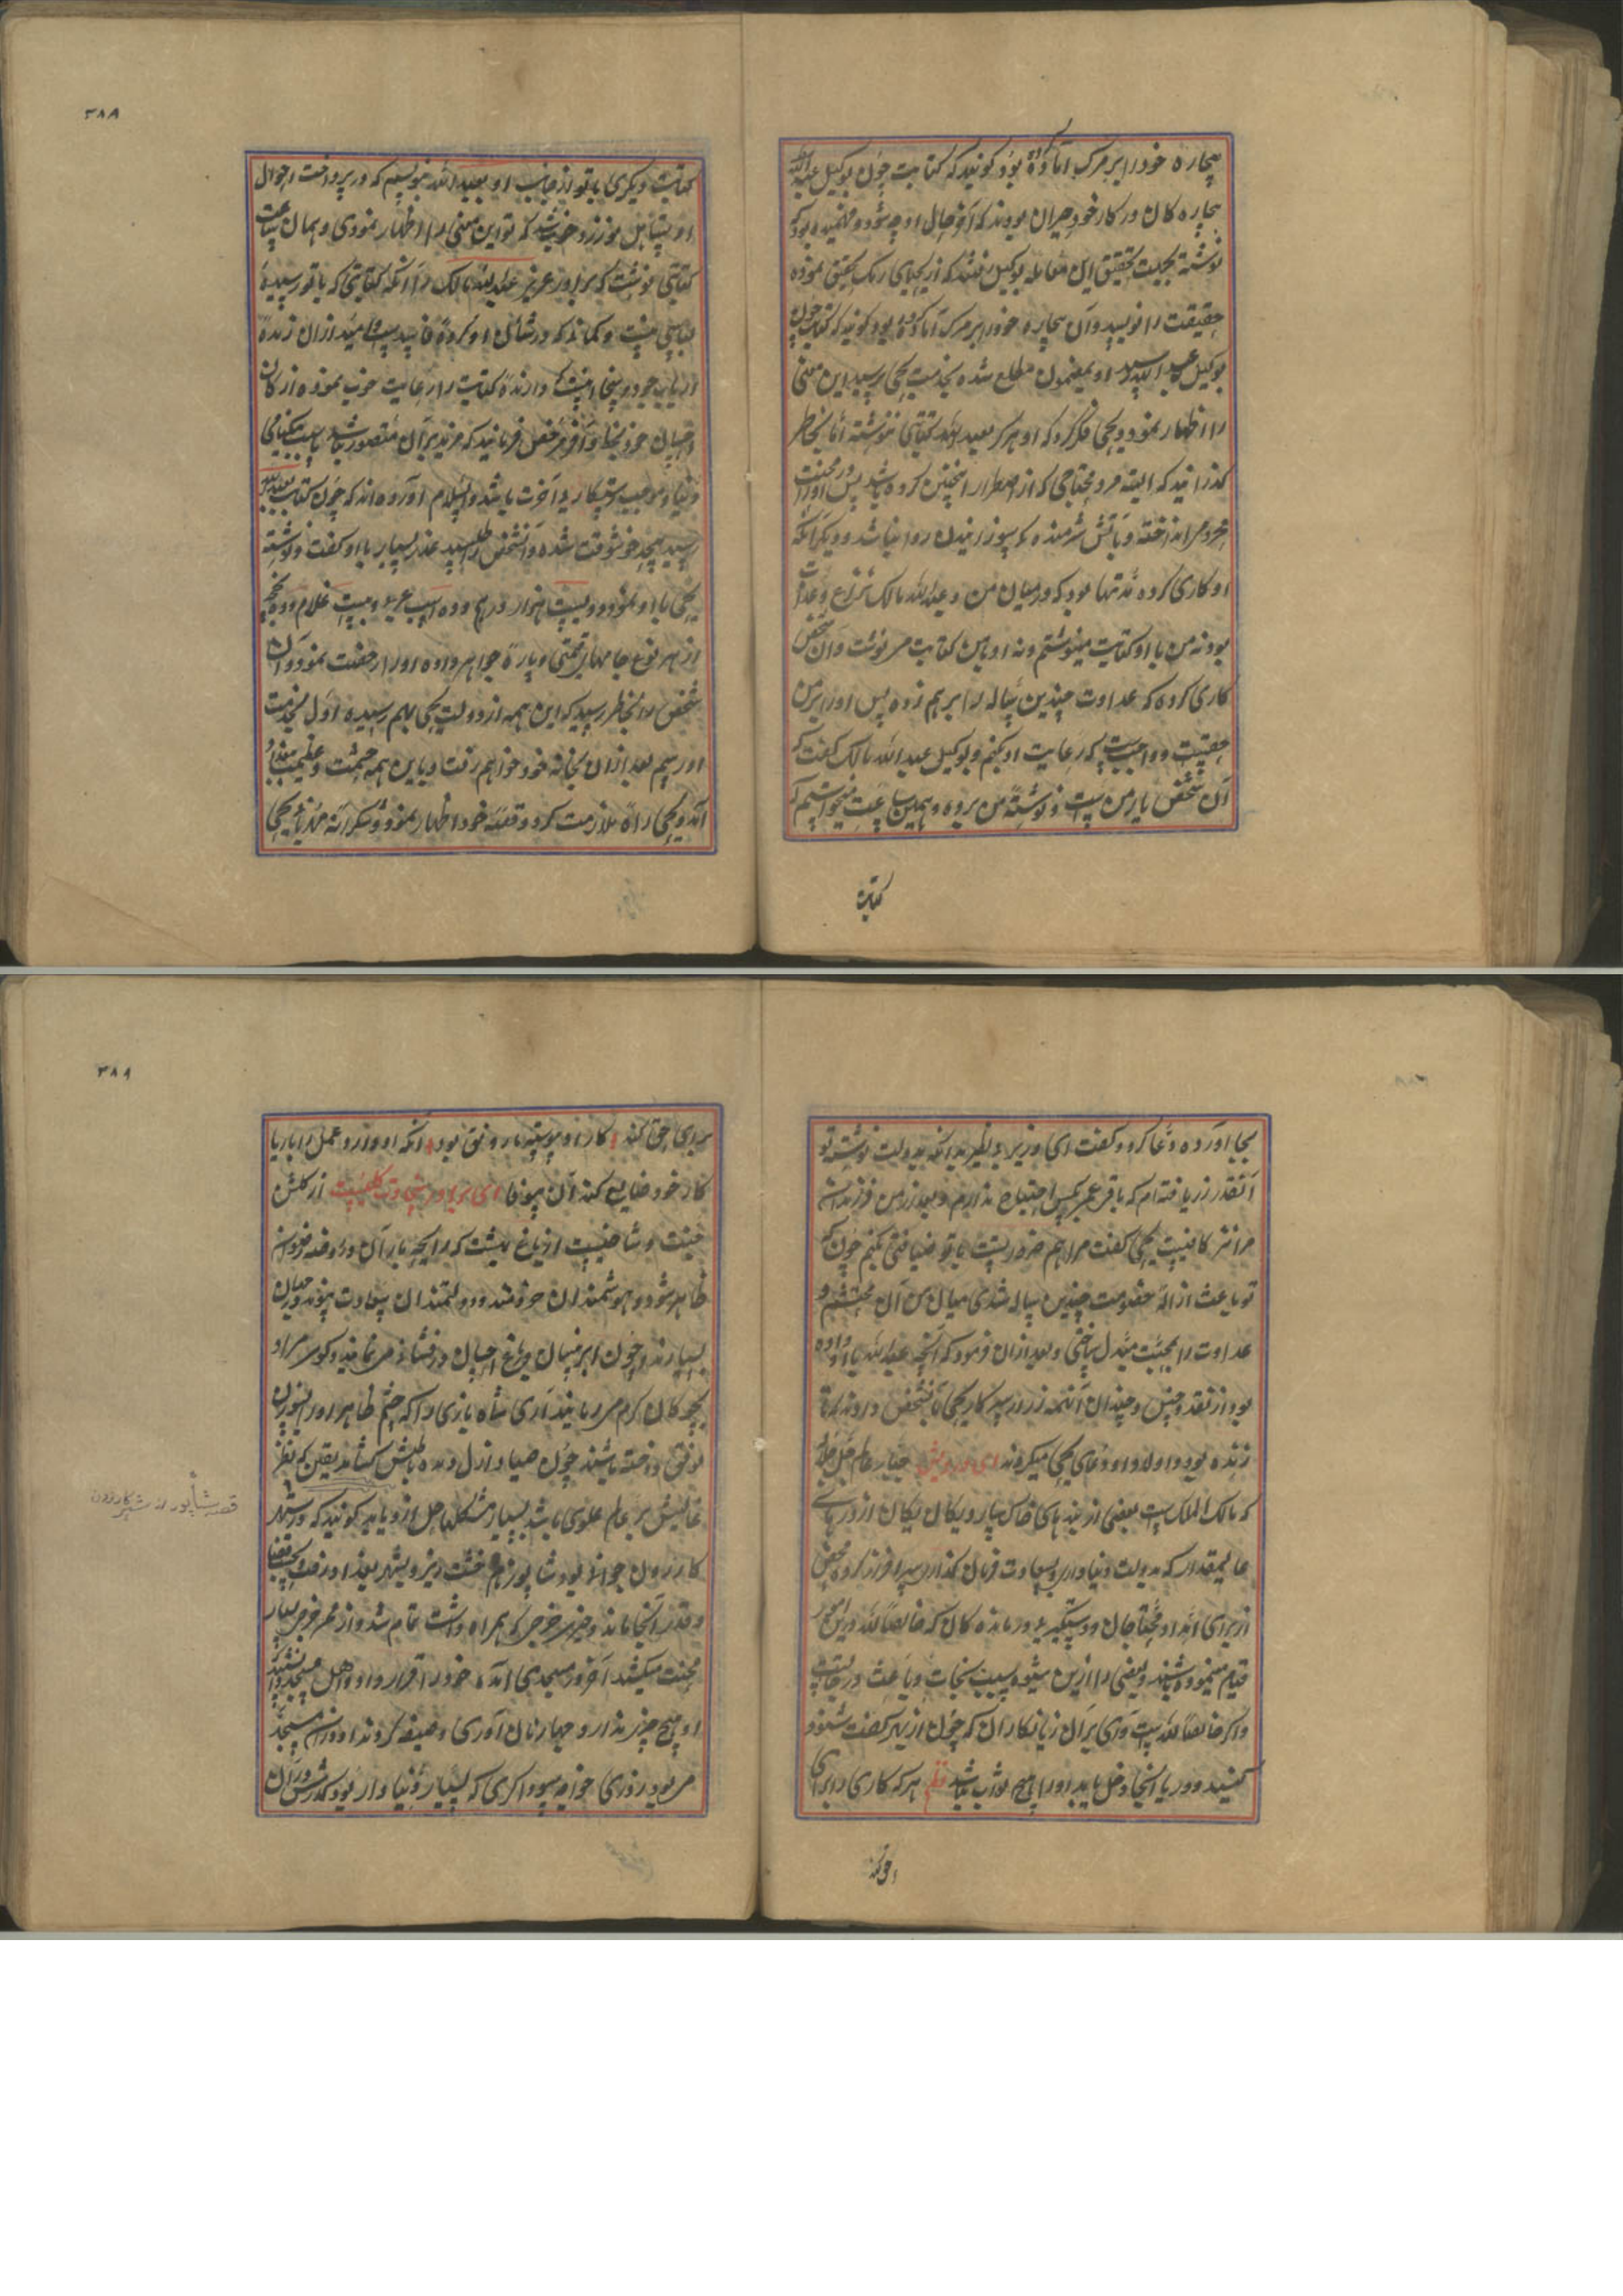 بیچاره خود را بر مرک آماده بود کویند که کتابت چون بوکیل عبدالله
بیچاره کان در کار خود حیران بودند که آخر حال او چه شود و فهمیده بود که
نوشته بجهت تحقیق این معامله بوکیل رفته که از یحیای برمک تحقیق نموده
حقیقت را نویسد و آن بیچاره خود را بر مرک آماده بود کویند که کتابت چون
بوکیل عبدالله رسید او بمضمون مطلع شده بخدمت یحیی رسید این معنی
را اظهار نمود و یحیی فکر کرد که او هرکز بعبدالله کتابتی ننوشته اما بخاطر
کذرانید که البته مرد محتاجی که از اضطرار اینچنین کرده باشد پس او را در محنت
انداختن و بآتش شرمنده کی سوزانیدن روا نباشد و دیکر آنکه
او کاری کرده مدتها بود که در میان من و عبدالله مالک نزاع و عداوت
بود نه من با او کتابت مینوشتم و نه او بمن کتابت می نوشت و آن شخص
کاری کرده که عداوت چندین ساله را بر هم زده پس او را بر من
حقیست و واجبست که رعایت او بکنم و بوکیل عبدالله مالک کفت که
آن شخص یار من است و نوشته من برده و همین ساعت میخواستم که
کتابت
۳۸۸
کتابت دیکری باتو از جانب او بعبدالله بنویسم که در پرداخت احوال
او تساهل نورزد خوب شد که تو این معنی را اظهار نمودی و همان ساعت
کتابتی نوشت که برادر عزیز عبدالله مالک را آنکه کتابتی که باتو رسیده
کتابتی منست و کمانی که در شان او کرده فاسد است امید از آن زنده
ارباب جود و سخا دارنده کتابت را رعایت خوب نموده از کان
احسان خود بخاوفر محفل فرمانید که مزید بر آن متصور نباشد باعث نیکنامی
دنیا و موجب رستکاری آخرت باشد والسلام آورده اند که چون کتابت بعبدالله
رسید بیحد خوشوقت شده و آنشخص را طلبید عذر بسیار با او کفت و نوشته
یحیی با او نمود و دویست هزار درهم و ده اسب عربی و بیست غلام و ده
از هر نوع جامهای قیمتی و پاره جواهر داده او را رخصت نمود و آن
شخص را بخاطر رسید که این همه از دولت یحیی بهم رسیده اول بخدمت
او رسم بعد از آن بخانه خود خواهم رفت و باین همه حشمت و عظمت ببغداد
آمد و یحیی را ملازمت کرد و قصه خود اظهار نمود و شکرانه مهربانی یحیی
بجا آورده دعا کرد و کفت ای وزیر بی نظیر بدانکه بدولت نوشته تو
آنقدر زر یافته ام که باقی عمر بکس احتیاج ندارم و بعد از من فرزندان
مرا نیز کافیست یحیی کفت مرا هم ضرور است باتو ضیافتی بکنم چون که
تو باعث ازاله خصومت چندین ساله شدی میان من و آن محتشم و
عداوت را بمحبت مبدل ساختی و بعد از آن فرمود که آنچه عبدالله باو داده
بود از نقد و جنس دو چندان آنهمه زر از سرکار یحیی بآنشخص دادند که تا
زنده بود و اولاد او دعای یحیی میکردند ای درویش جبار عالم جل جلاله
که مالک الملک است بعضی از بندهای خاکسار و یکان یکان از ذرهای
عالیمقدار که بدولت دنیاوی و سعادت فرمان کذاری سرافراز کرده محض
از برای امداد محتاجان و دستکیری درمانده کان که خالصا لله در این امور
قیام مینموده باشند و بعضی را ازین شیوه سبب نجات و باعث درجاتست
و اکر خالصا لله نیست وای بر آن زیانکاران که چون از بهر کفت شنود
کنند و ریا اینجا دخل یابد او را هیچ ثواب نباشد نظم هر که کاری را برای
حق کند
۳۸۹
برای حق کند کار او پیوسته با رونق بود آنکه او ورزد عمل را با ریا
کار خود ضایع کند آن بیوفا ای برادر سخاوت کلیست از کلشن
جنت و شاخیست از باغ بهشت که رایحه بار آن در روضه رضوان
ظاهر شود و هوشمندان خردمند و دولتمندان سعادت پیوند در جهان
بسیارند و چون ابر نیسان در باغ احسان درفشانی می نمایند و کوی مراد
بچوکان کرم می ربایند آری شاه بازی را که چشم ظاهر او بسوزن
توفیق دوخته باشند چون صیاد ازل دیده باطنش کشاید یقین که نظر
عالیش بر عالم علوی باشد بسیار مشکلها حل ازو یابد کویند که در شهر
کازرون جوانی بود شاپور نام خشت ریز و بشهر بغداد رفت بحسب قضا
و قدر آنجا ماند و چیزی خرجی که همراه داشت تمام شد و از ممر خرج بسیار
محنت میکشید آخر در مسجدی آمده خود را قرار داد و اهل مسجد دانستند که
او هیچ چیز ندارد چهار نان آوری وظیفه کردند او در آن مسجد
می بود روزی خواجه سوداکری که بسیار دنیادار بود کذرش در آن
قصه شاپور از شهر کازرون